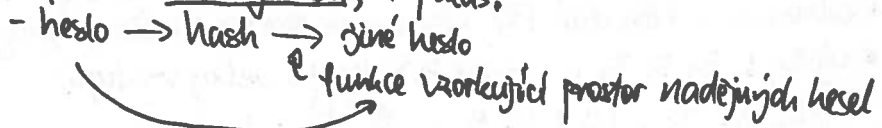 - heslo → hash → jiné heslo
funkce vzorkující prostor nadějných hesel